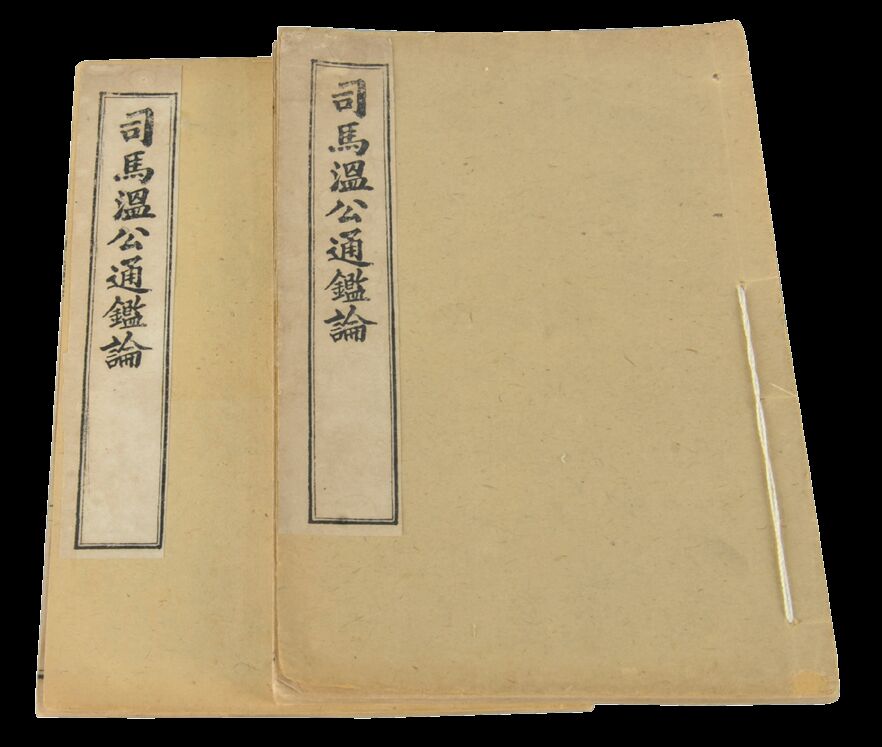 司馬溫公通鑑論
司馬溫公通鑑論